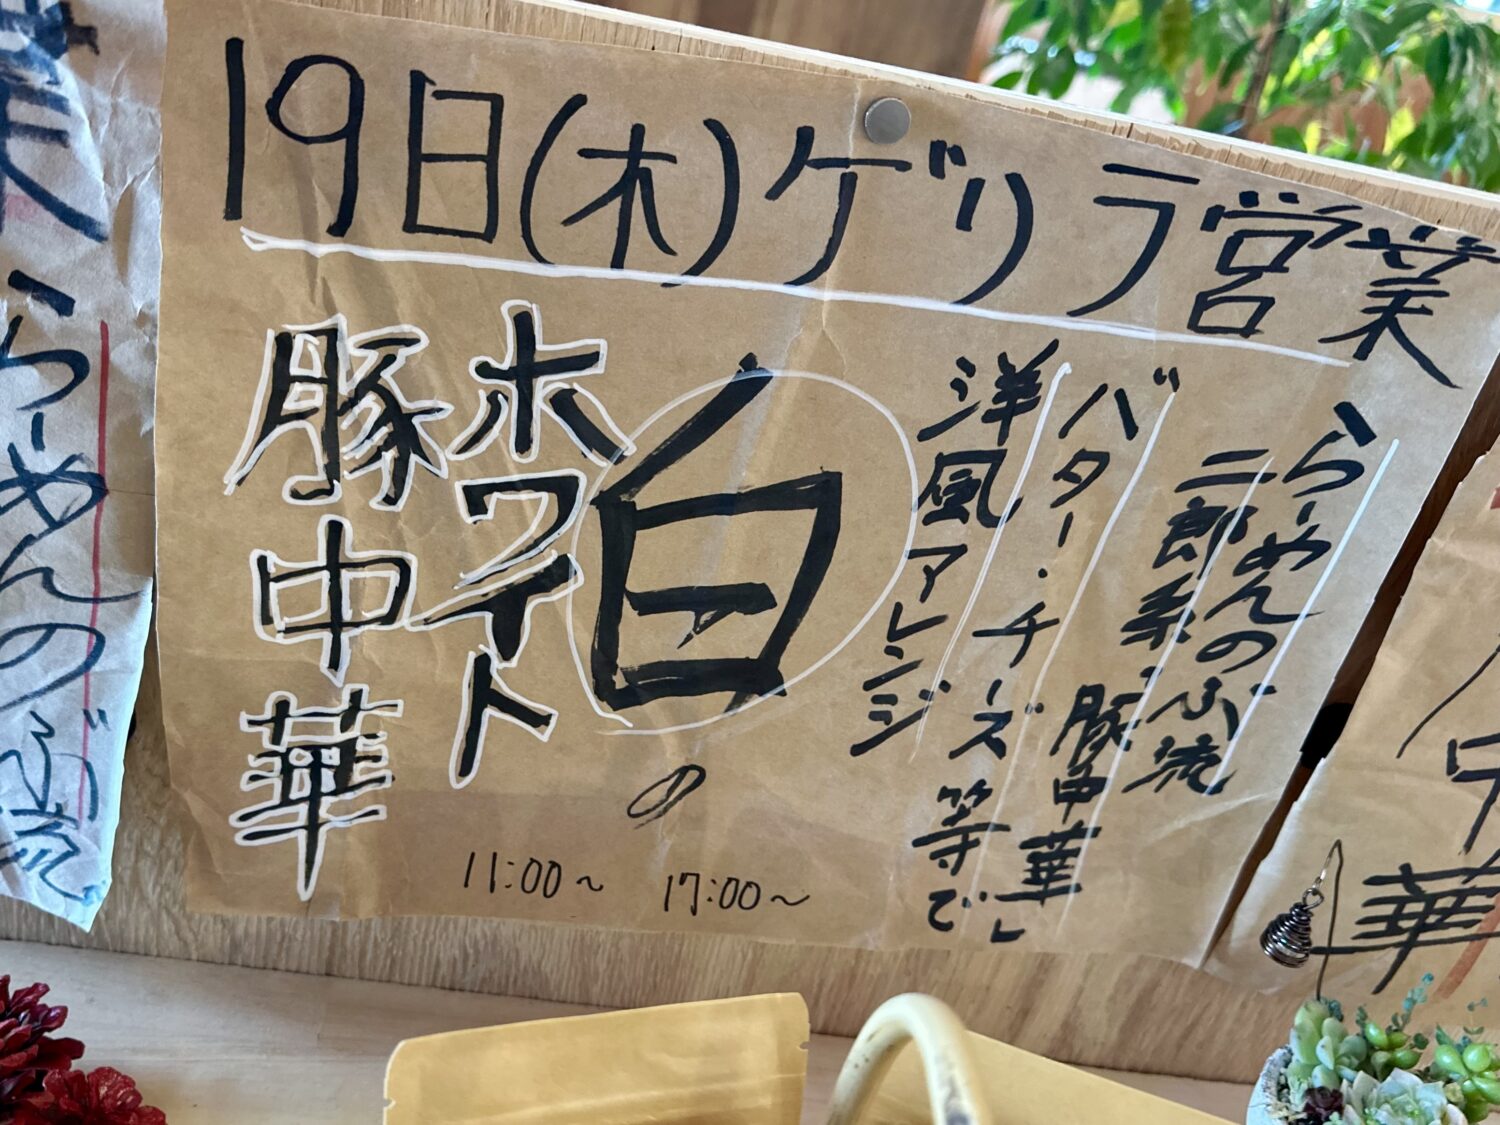 19日(木)ゲリラ営業
らーめんのぶ流
二郎系、豚中華」
バター・チーズ等で
洋風アレンジ
白の
ホワイト
豚中華
11:00～ 17:00～
らーめんのぶ流。
中華